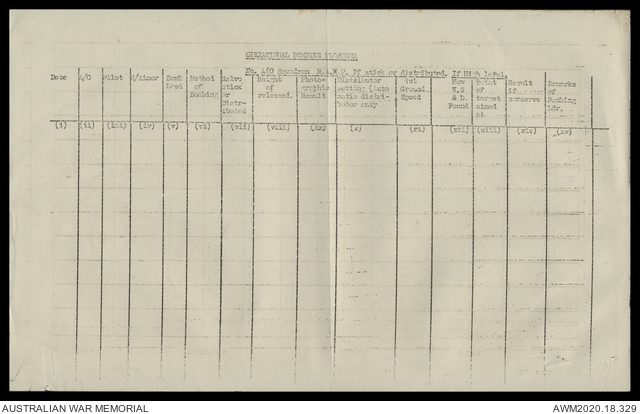 OPERATIONAL BOMBING
No. 460 Squadron R.A.A.F. If stick or distributed. If High level.
Date A/C Pilot B/Aimor Bomb Load Method of Bombing Salvo stick or Distributed Height of released. Photographic Result Distributor setting (Automatic distributor only 1st Ground Speed How W.S & D. Found Point of target aimed at Result if conserve Remarks of Bombing Ldr.
(i) (ii) (iii) (iv) (v) (vi) (vii) (viii) (ix) (x) (xi) (xii) (xiii) (xiv) (xv)
AUSTRALIAN WAR MEMORIAL AWM2020.18.329